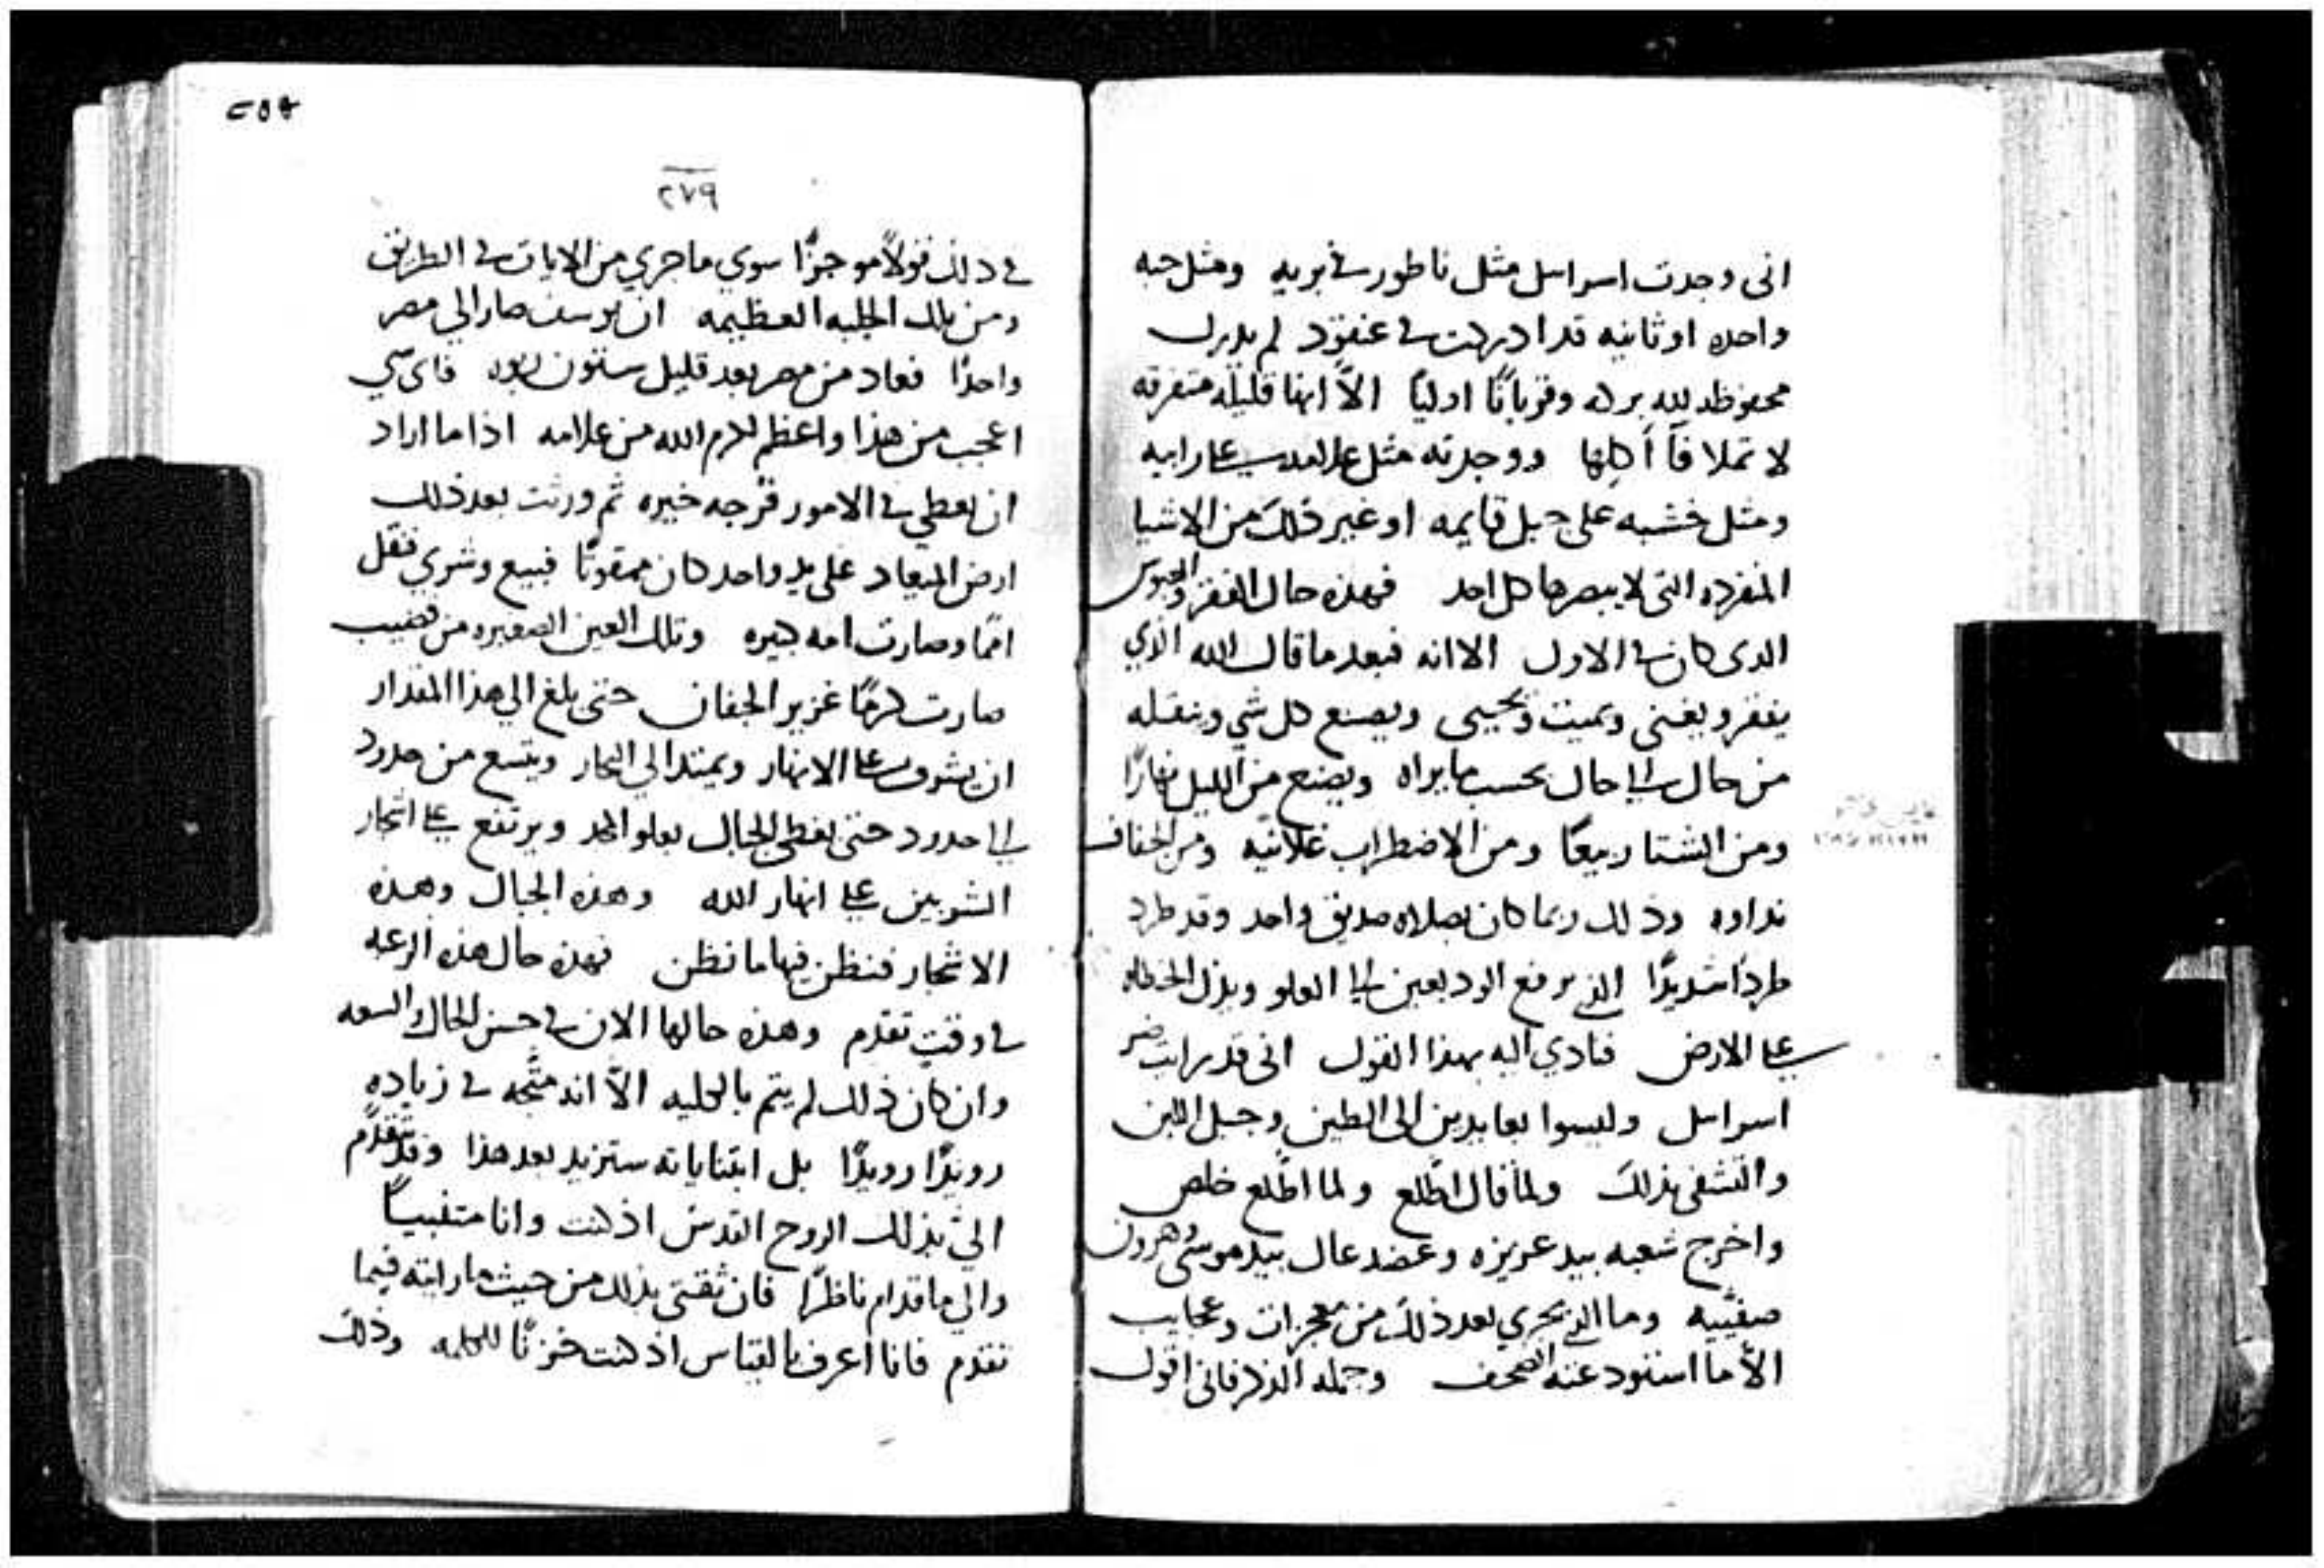 انى وجدت اسراىىل مثل ناطور فى بريه ومثل حبه
واحده او ثانيه قد ادركت فى عنقود لم يدرك
محفوظه لله بركه وقربانًا اوليًا الاّ انها قليله متفرقه
لا تملا فاَ اَكلها ووجدته مثل على رابيه
ومثل خشبه على جبل قايمه او غير ذلك من الاشيا
المنفرده التى لا يبصرها كل احد فهذه حال الفقر
الدى كان فى الاول الا انه فبعد ما قال الله الذي
يفقر ويغنى ويميت ويحيى ويصنع كل شي وينقله
من حال الى حال بحسب ما يراه ويصنع من الليل نهارًا
ومن الشتا ربيعًا ومن الاضطراب ومن الجفاف
نداوه وذلك ربما كان بصلاه صديق واحد وقد طرد
طردًا شديدًا الذي يرفع الوديعين الى العلو ويذل الخطاه
على الارض فنادي اليه بهذا القول انى قد رايت ضر
اسراىىل وليسوا بعابدين الى الطين وجبل اللبن
والتشفى بذلك ولما قال اطّلع ولما اطّلع خلص
واخرج شعبه بيد عزيزه وعضد عال بيد موسى وهرون
صفيّيه وما الذي يجري بعد ذلك من معجزات وعجايب
الاّ ما استودعته الصحف وجمله الذكر فانى اقول
٢٥٩
٢٧٩
فى ذلك قولاً موجزًا سوي ما جري من الايات فى الطريق
ومن تلك الجلبه العظيمه ان يوسف صار الى مصر
واحدًا فعاد من مصر بعد قليل ستون ربوه فاى شي
اعجب من هذا واعظم لكرم الله من علامه اذا ما اراد
ان يعطي فى الامور خيره ثم ورثت بعد ذلك
ارض الميعاد على يد واحد كان ممقوتًا فبيع وشري فنقل
اممًا وصارت امه كبيره وتلك العين الصغيره من قضيب
صارت كرمًا غزير الجفان حتى بلغ الى هذا المقدار
ان يشرف على الانهار ويمتد الى البحار ويتسع من حدود
الى حدود حتى يغطى الجبال بعلو المجد ويرتفع على اشجار
الشربين على انهار الله وهذه الجبال وهذه
الاشجار فنظن فيها ما نظن فهذه حال هذه الرعيه
فى وقت تقدم وهذه حالها الان فى حسن الحال والسعه
وان كان ذلك لم يتم بالكليه الاّ انه متّجه فى زياده
رويدًا رويدًا بل ستزيد بعد هذا وقد تقدّم
الىّ بذلك الروح القدس اذ كنت وانا متنبيًا
والى ما قدام ناظرًا فان ثقتى بذلك من حيث ما رايته فيما
تقدم فانا اعرف بالقياس اذ كنت للكلمه وذلك